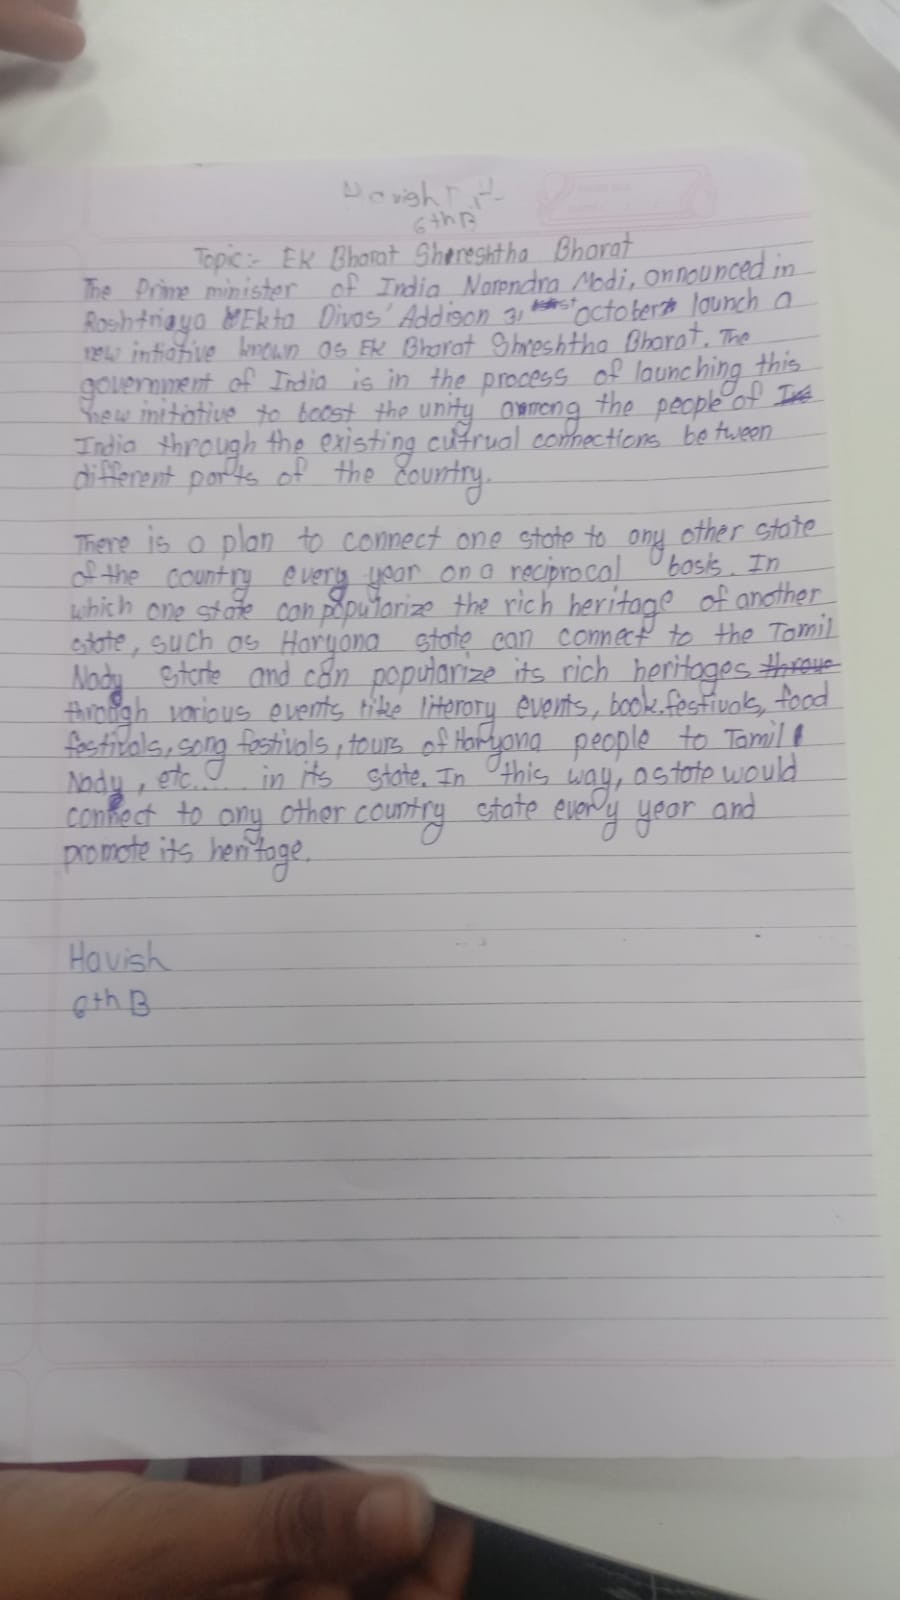 Havish
6th B
Topic:- EK Bharat Shereshtha Bharat
The Prime minister of India Narendra Modi, onnounced in
Rashtriaya Ekta Divas' Addison 31st october launch a
new intiative known as EK Bharat Shreshtha Bharat. The
government of India is in the process of launching this
new initiative to boost the unity among the people of
India through the existing cutrual connections between
different parts of the country.
There is a plan to connect one state to any other state
of the country every year on a reciprocal basis. In
which one state can popularize the rich heritage of another
state, such as Haryana state can connect to the Tamil
Nady state and can popularize its rich heritages
through various events like literary events, book.festivals, food
festivals, song festivals, tours of Haryana people to Tamil
Nady, etc...... in its state. In this way, a state would
connect to any other country state every year and
promote its heritage.
Havish
6th B